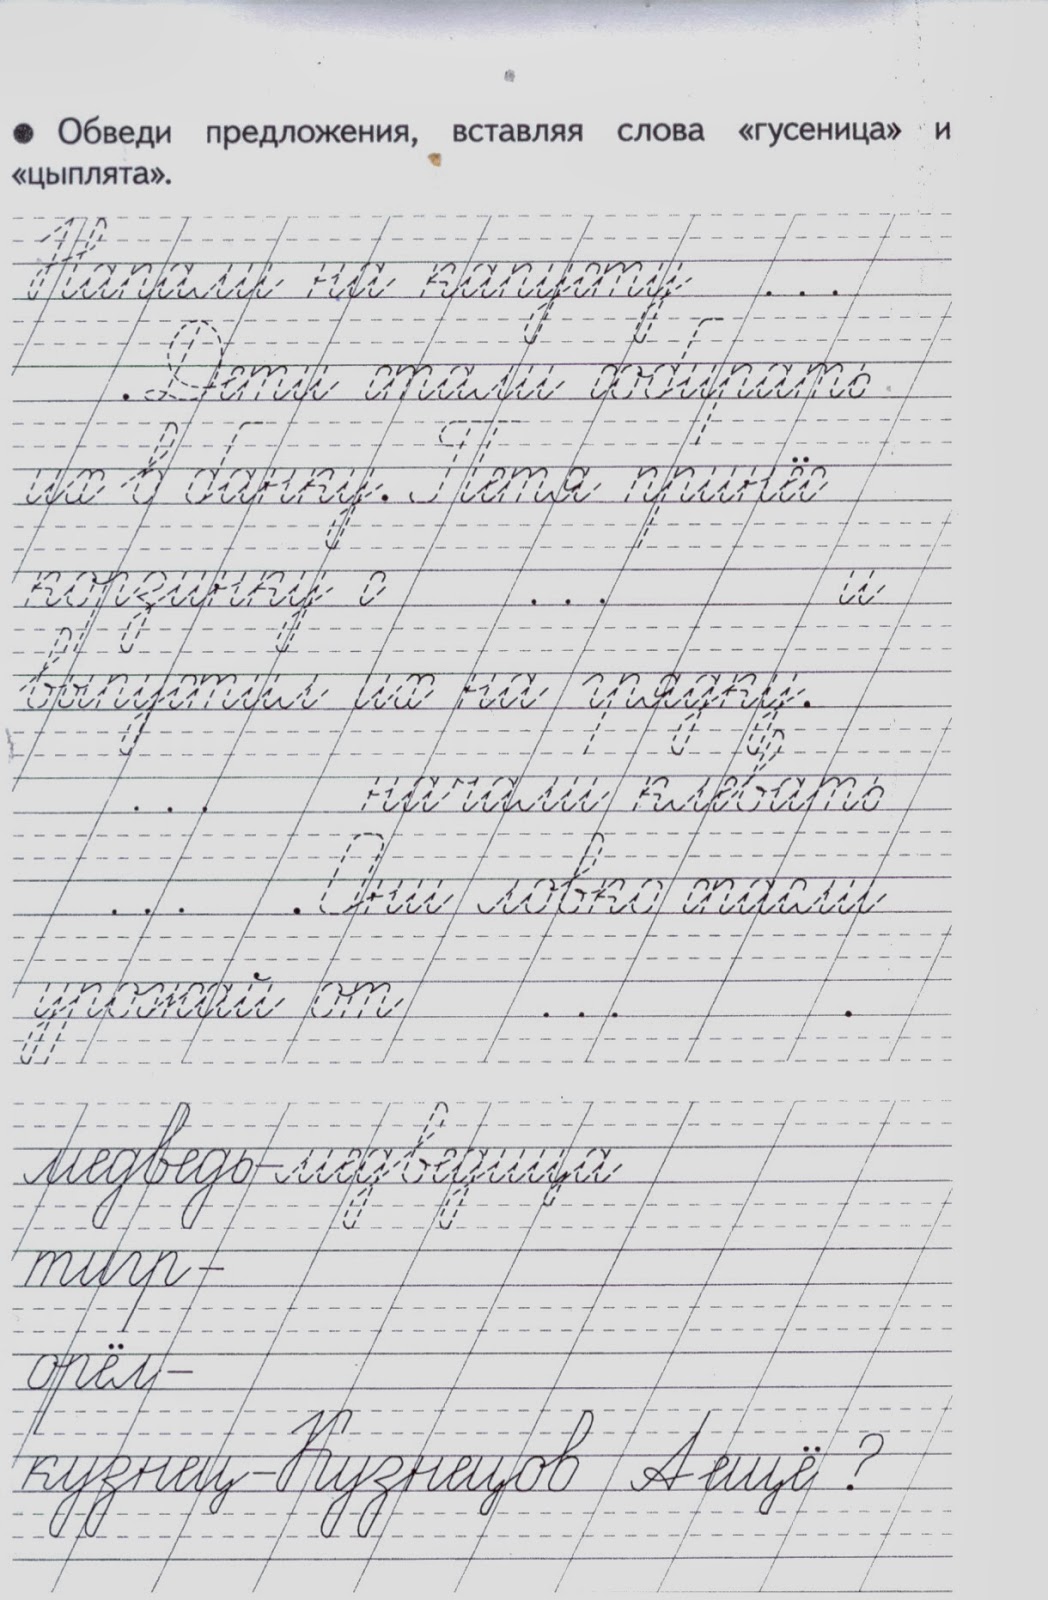 ● Обведи предложения, вставляя слова «гусеница» и
«цыплята».
Напали на капусту ...
. Дети стали собирать
их в банку. Петя принёс
корзинку с ... и
выпустил их на грядку.
... начали клевать
... . Они ловко спасли
урожай от ... .
медведь-медведица
тигр-
орёл-
кузнец-Кузнецов А ещё?